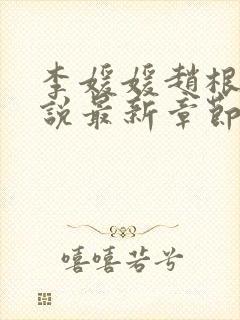 李媛媛趙根
說最新章節
嘻嘻若兮